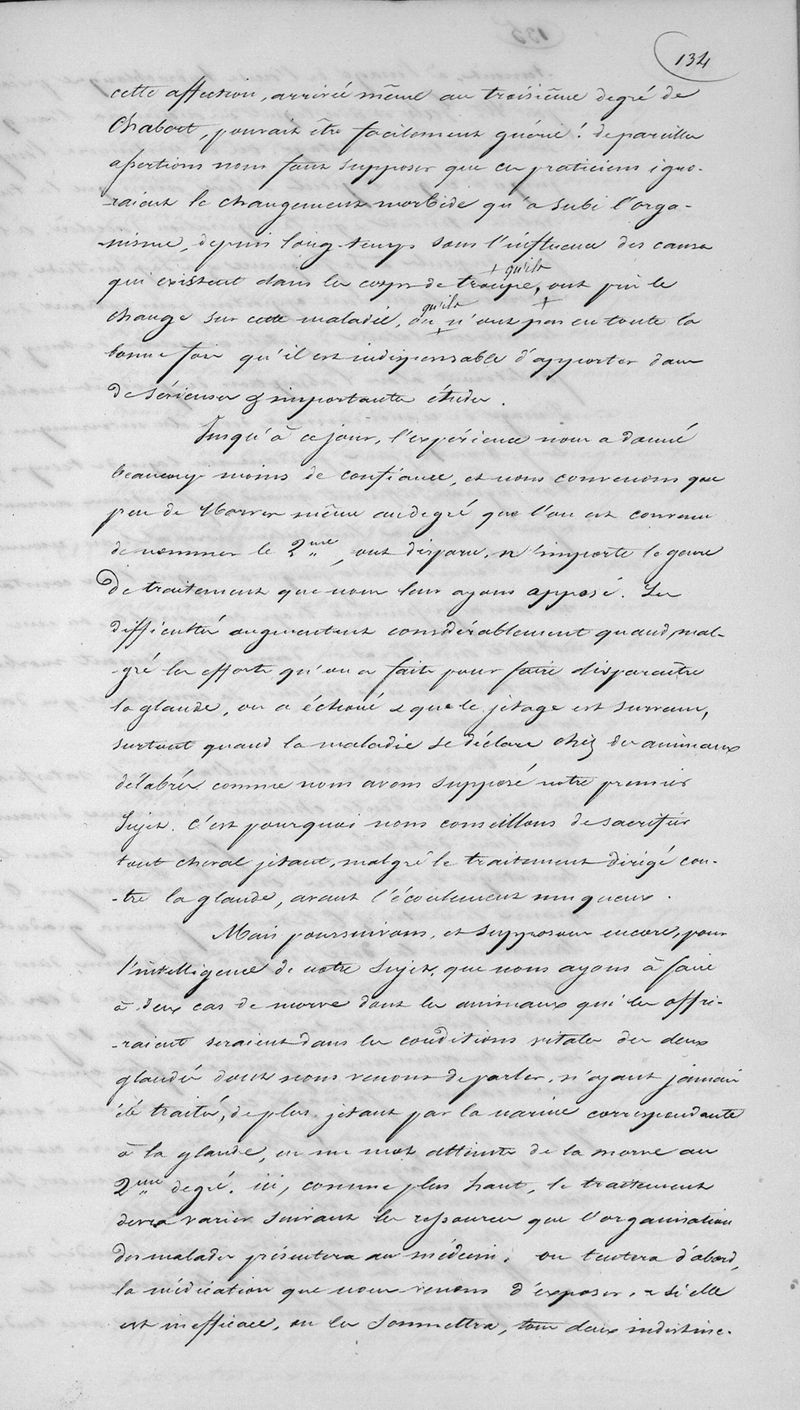 134
cette affection, arrivée même au troisième degré de
Chabert, pouvait être facilement guérie! de pareilles
assertions nous font supposer que ces praticiens igno-
-raient le changement morbide qu'a subi l'orga-
-nisme, depuis long-temps sous l'influence des causes
qui existent dans les corps de troupe, + qu'ils ont pris le
change sur cette maladie, ou qu'ils n'ont pas eu toute la
bonne foi qu'il est indispensable d'apporter dans
de sérieuses & importantes études.
Jusqu'à ce jour, l'expérience nous a donné
beaucoup moins de confiance, et nous convenons que
peu de Morves même au degré que l'on est convenu
de nommer le 2me, ont disparu, n'importe le genre
de traitement que nous leur ayons opposé. Les
difficultés augmentent considérablement quand, mal-
-gré les efforts qu'on a faits pour faire disparaître
la glande, on a échoué & que le jetage est survenu,
surtout quand la maladie se déclare chez des animaux
délabrés comme nous avons supposé notre premier
Sujet. C'est pourquoi nous conseillons de sacrifier
tout cheval jetant, malgré le traitement dirigé con-
-tre la glande, avant l'écoulement muqueux.
Mais poursuivons, et supposons encore, pour
l'intelligence de notre sujet, que nous ayons à faire
à deux cas de morve dont les animaux qui les offri-
-raient seraient dans les conditions vitales des deux
glandés dont nous venons de parler, n'ayant jamais
été traités, de plus, jetant par la narine correspondante
à la glande, en un mot atteints de la morve au
2me degré. ici, comme plus haut, le traitement
devra varier suivant les ressources que l'organisation
des malades présentera au médecin. on tentera d'abord,
la médication que nous venons d'exposer, & si elle
est inefficace, on les soumettra, tous deux indistinc-